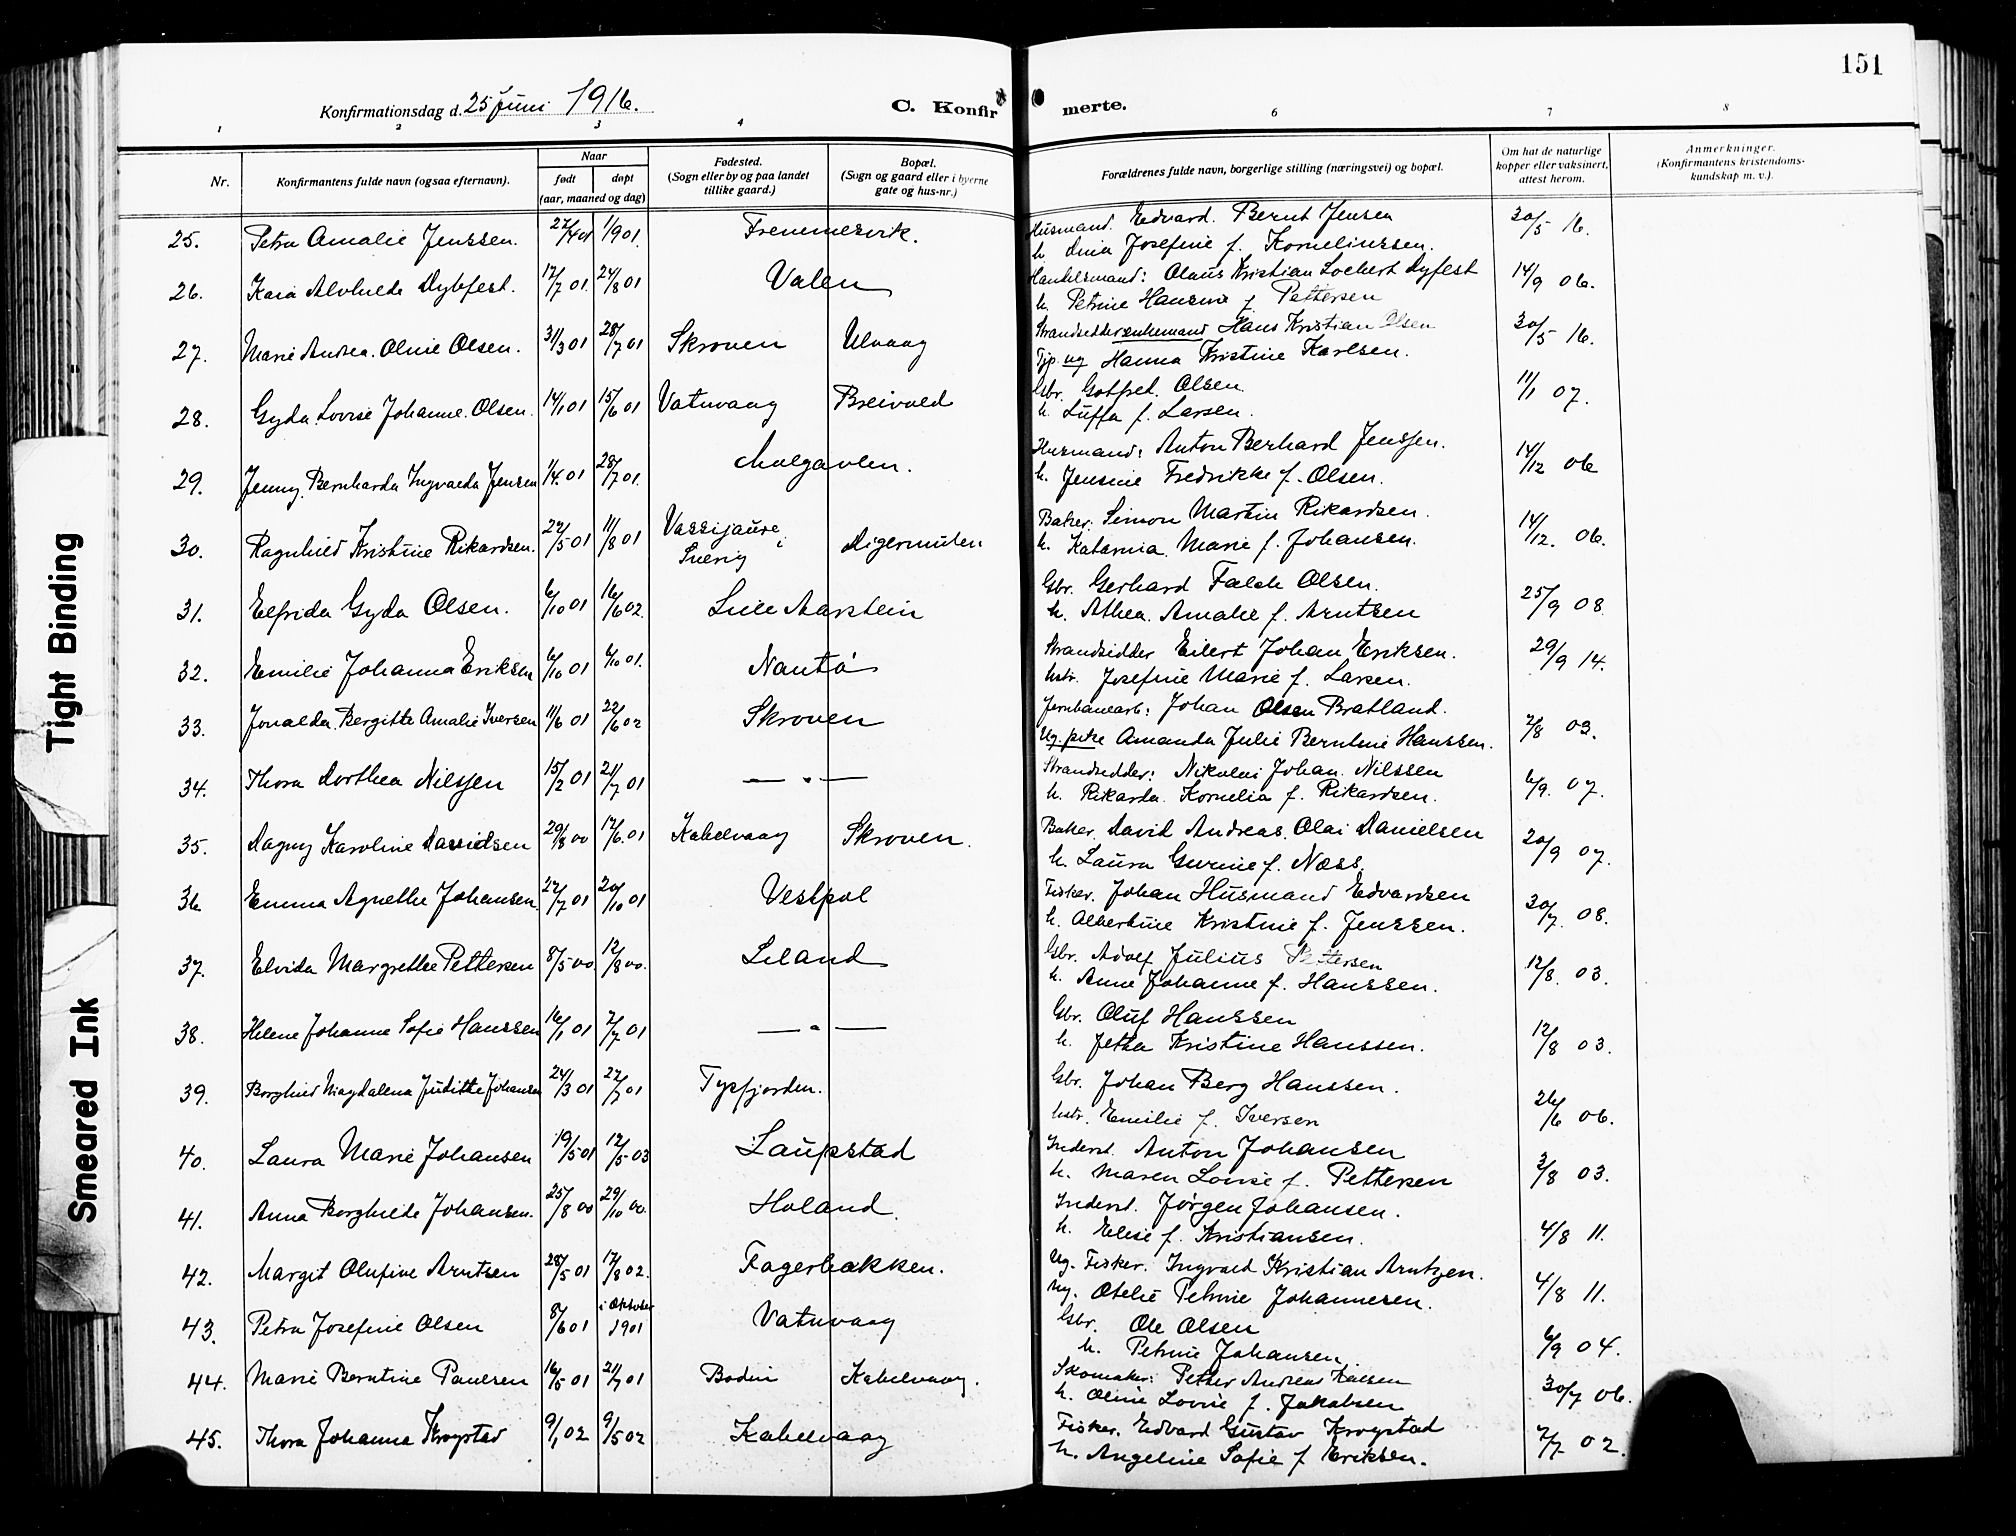 151
Konfirmationsdag d. 25 Juni 1916.
C. Konfirmerte.
1 2 3 4 6 7 8
Nr. Konfirmantens fulde navn (ogsaa efternavn). Naar født døpt (aar, maaned og dag) Fødested. (Sogn eller by og paa landet tillike gaard.) Bopæl. (Sogn og gaard eller i byerne gate og hus-nr.) Forældrenes fulde navn, borgerlige stilling (næringsvei) og bopæl. Om hat de naturlige kopper eller vaksinert, attest herom. Anmerkninger. (Konfirmantens kristendomskundskap m. v.).
25. Petra Amalie Jenssen. 27/4 01 1/9 01. Husmand. Edvard. Bernt Jensen 30/5 16.
h. Josefine f. Korneliussen.
26. Dybfest. 17/7 01. 24/8 01 Valen Handelsmand: Olaus Kristian Lochert Dyfest 14/9 06.
h. Petrine Hansine f. Pettersen
27. Marie Andrea. Oline Olsen. 31/3 01 28/7 01 Skroven Ulvaag Strandsidder enkemand Hans Kristian Olsen 30/5 16.
Tjp. ug Hanna Kristine Karlsen.
28. Gyda Lovise Johanne. Olsen. 14/1 01 15/6 01 Vatnvaag Breivold Gbr. Gotfred. Olsen. 11/1 07.
h. Luffa f. Larsen.
29. Jenny. Bernharda Ingvalda Jensen 1/4. 01 28/7 01. Husmand: Anton Berhard Jenssen. 14/12 06
h. Jensine Fredrikke f. Olsen.
30. Ragnhild Kristine Rikardsen. 22/5 01 11/8 01 Vassijaure i Sverig Digermulen Baker: Simon Martin Rikardsen. 14/12. 06.
h. Katarnia Marie f. Johansen.
31. Elfrida Gyda Olsen. 6/10 01 16/6 02. Lille Aarstein Gbr. Gerhard Falch Olsen. 25/9 08.
h. Althea. Amalie f. Arntsen
32. Emilie Johanna Eriksen 6/10 01 6/10 01. Nantø Strandsidder Eilert Johan Eriksen. 29/9 14.
hstr. Josefine Marie f. Larsen.
33. Jonalda. Bergitte Amalie Iversen 11/6 01 22/6 02 Skroven Jernbanearb: Johan Olsen Bratland. 7/8 03.
Ug. pike Amanda Julie Berntine Hanssen.
34. Thora Dorthea Nilssen 15/2 01 21/7 01 — " — Strandsidder: Nikolai Johan. Nilssen 6/9. 07.
h. Rikarda. Kornelia f. Rikardsen.
35. Dagny Karoline Davidsen 29/8 00 17/6. 01 Kabelvaag Skroven. Baker. David Andreas. Olai Danielsen 20/9 07.
h. Laura f. Næss.
36 Emma Agnethe Johansen. 27/7 01 20/10 01 Vestpol Fisker. Johan Husmand Edvardsen 30/7. 08.
h. Albertine Kristine f. Jenssen.
37. Elvida Margrethe Pettersen 8/5 00. 12/8 00. Liland Gbr. Adolf Julius Pettersen 12/8. 03.
h. Anne Johanne f. Hanssen.
38. Helene Johanne Sofie Hanssen 16/1 01 7/7 01 — " — Gbr. Oluf Hanssen 12/8 03.
h. Jetta Kristine Hanssen.
39. Borghild Magdalena Juditte Johansen 24/3 01 27/7 01 Tysfjorden. Gbr. Johan Berg Hanssen. 26/6 06.
hstr. Emilie f. Iversen
40. Laura Marie Johansen 19/5 01 12/5 03 Laupstad Inderst. Anton Johansen 3/8 03.
h. Maren Lovise f. Pettersen
41. Anna Borghilde Johansen. 25/8 00 29/10 00. Holand. Inderst. Jørgen Johansen. 4/8 11.
h. Elise f. Kristiansen.
42. Margit Olufine Arntsen 28/5 01 17/8 02. Fagerbakken. Ug. Fisker. Ingvald Kristian Arntzen. 4/8 11.
Ug. Otelie Petrine Johannesen.
43. Petra Josefine Olsen 8/6 01 i Oktober 1901 Vatnvaag Gbr. Ole Olsen 6/9 04.
h. Petrine Johansen.
44. Marie Berntine Paulsen 16/5 01 21/7 01 Bodin Kabelvaag. Skomaker: Petter Andreas 30/7 06.
h. Oline Lovise f. Jakobsen
45. Thora Johanna Krogstad 9/1 02 9/5 02 Kabelvaag Fisker. Edvard Gustav Krogstad 7/7 02.
h. Angeline Sofie f Eriksen.
Tight Binding
Smeared Ink